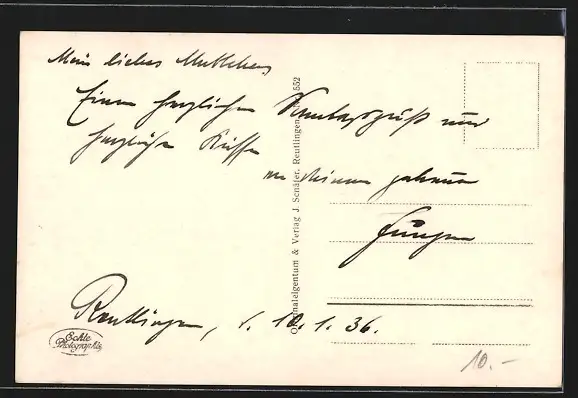 Mein liebes Muttchen,
Einen herzlichen Sonntagsgruß und
herzliche Küsse
von Deinem
Jungen
Reutlingen, d. 10.1.36.
Originaleigentum & Verlag J. Schäfer, Reutlingen, Nr. 552
Echte Photographie
10.-